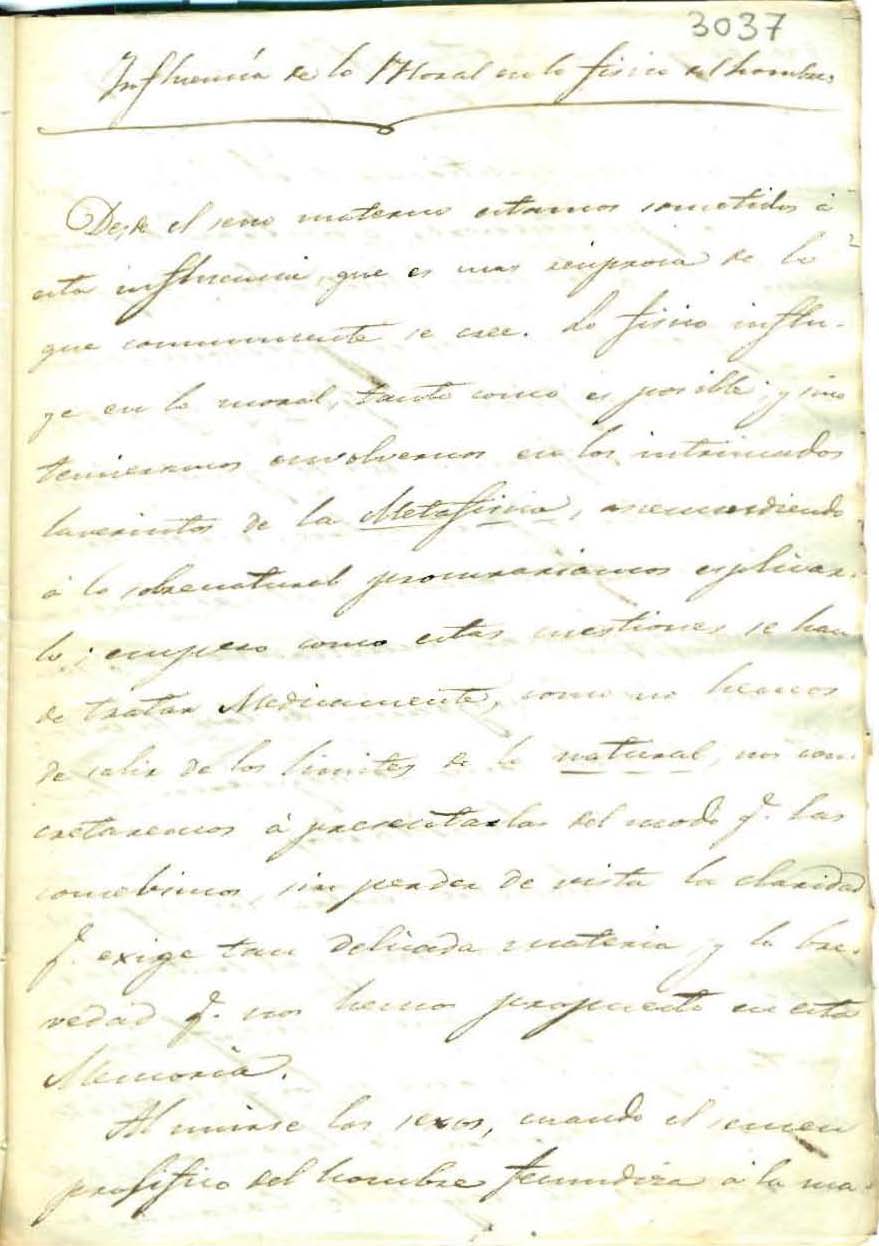 3037
Influencia de lo Moral en lo fisico del hombre.
Desde el seno materno estamos sometidos á
esta influencia, que es mas reciproca de lo
que comunmente se cree. Lo fisico influ-
ye en lo moral, tanto como es posible; y sino
temieramos envolvernos en los intrincados
laverintos de la Metafisica, ascendiendo
á lo sobrenatural procurariamos esplicar-
lo; empero como estas cuestiones se han
de tratar Medicamente, como no hemos
de salir de los limites de lo natural, nos con-
cretaremos á presentarlas del modo q.e las
concebimos, sin perder de vista la claridad
q.e exige tan delicada materia, y la bre-
vedad q.e nos hemos propuesto en esta
Memoria.
Al unirse los sexos, cuando el semen
prolifico del hombre fecundiza á la ma-